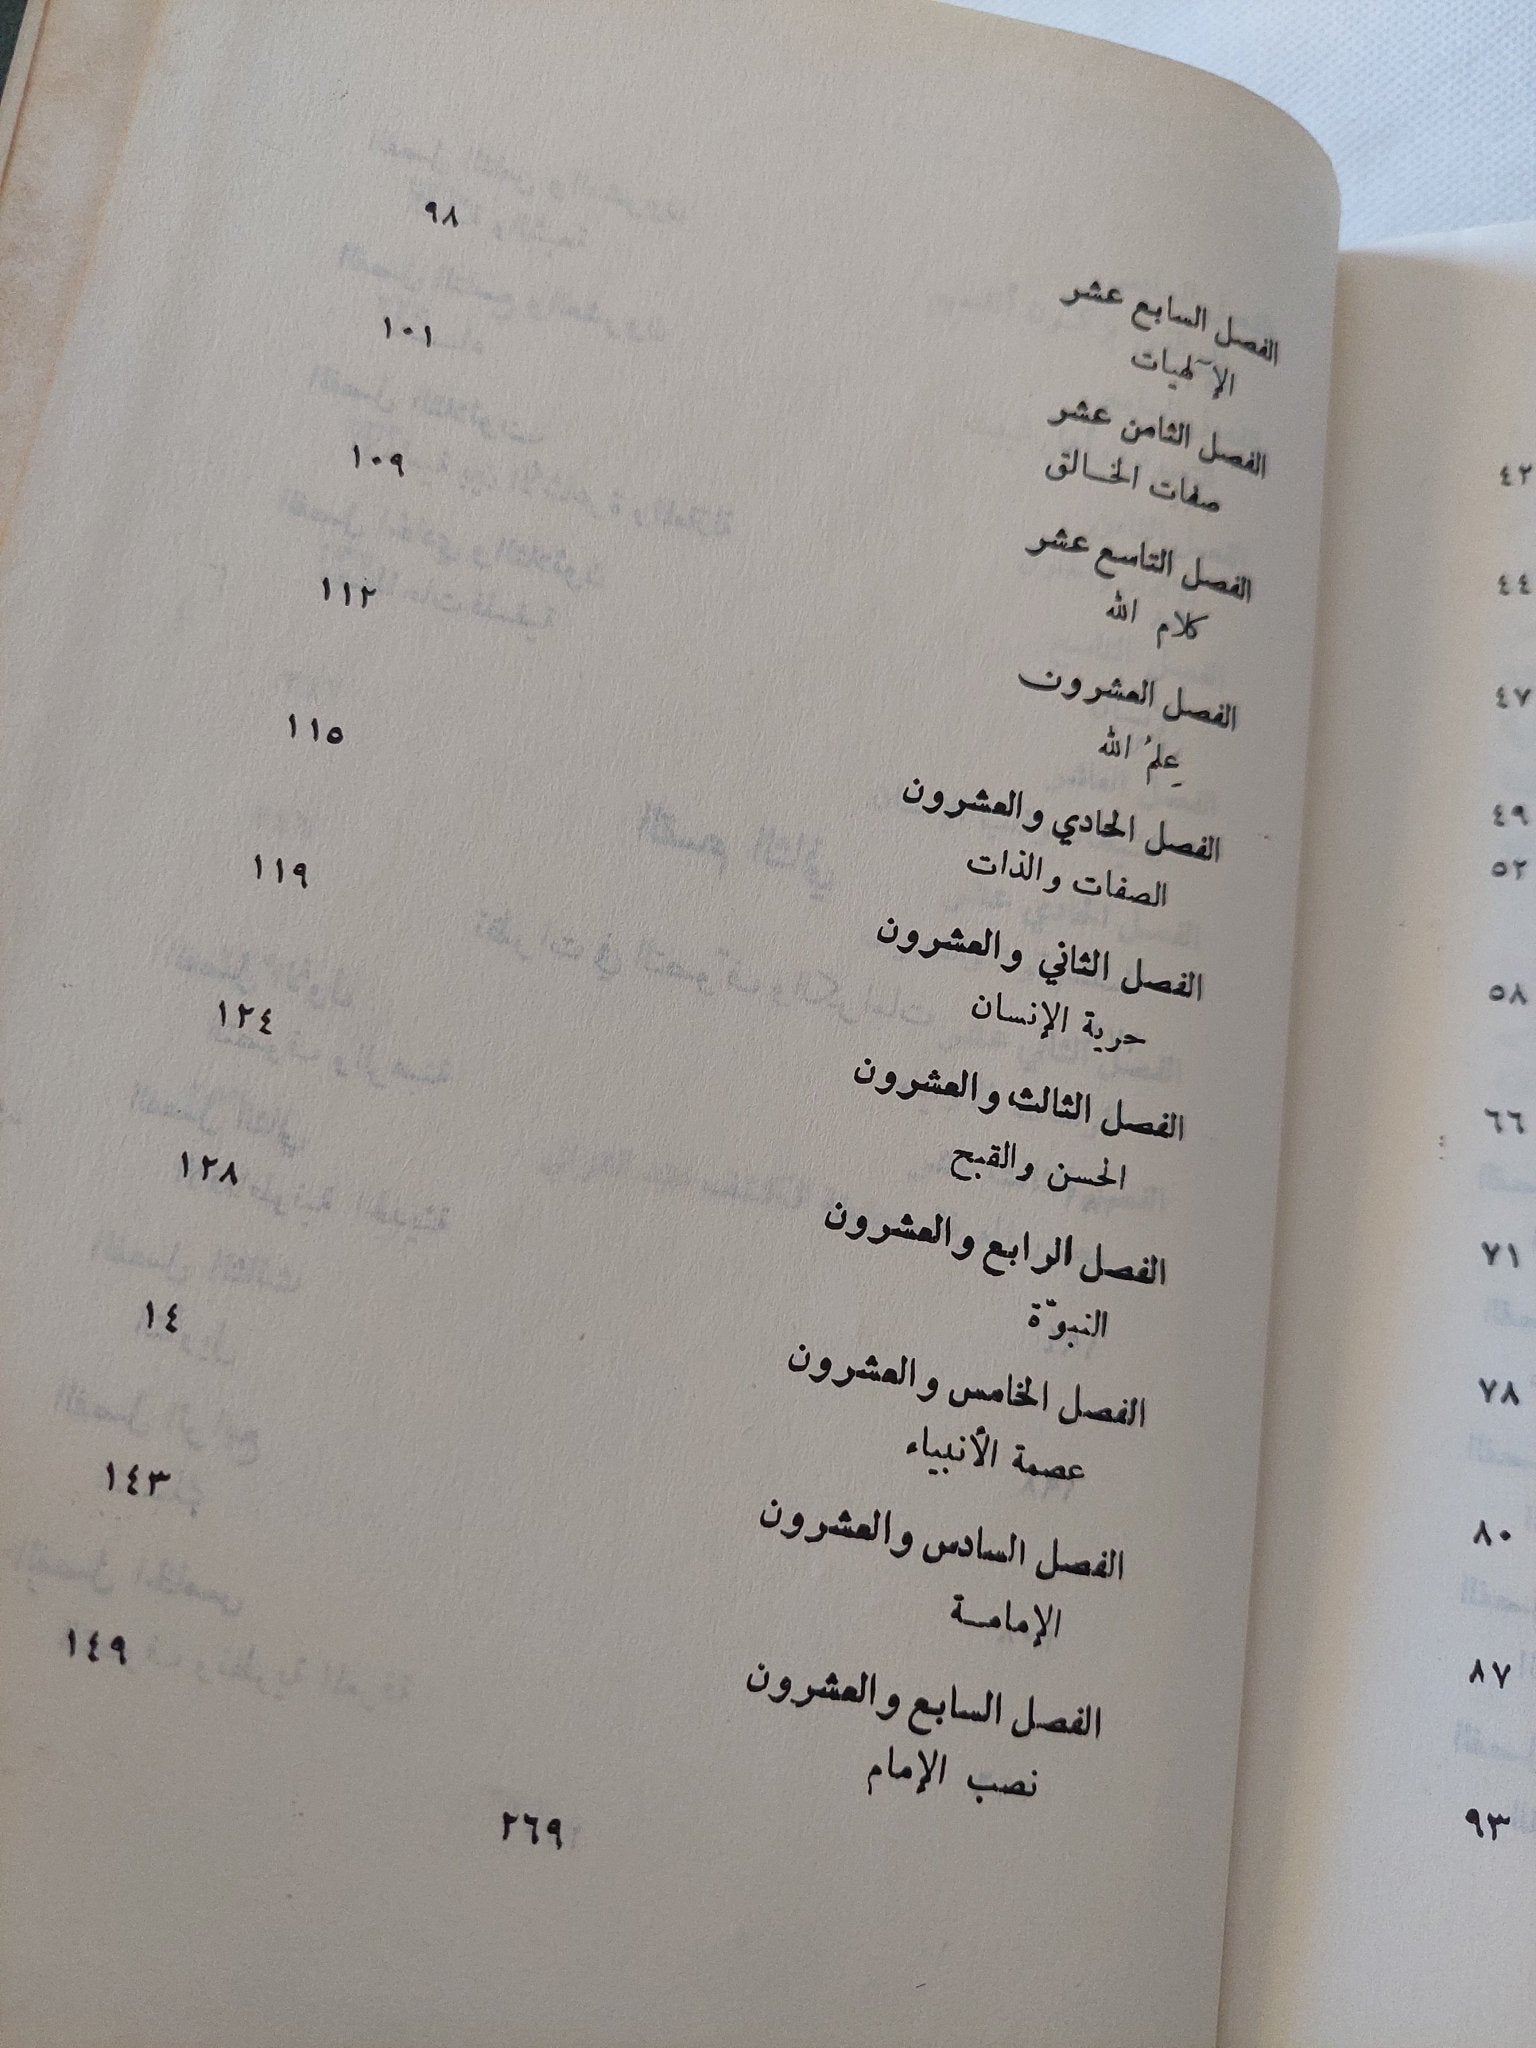 الفصل السابع عشر
الإٓلهيات ٩٨
الفصل الثامن عشر
صفات الخـالق ١٠١
الفصل التاسع عشر
كلام الله ١٠٩
الفصل العشرون
عِلمُ الله ١١٢
الفصل الحادي والعشرون
الصفات والذات ١١٥
الفصل الثاني والعشرون
حرية الإنسان ١١٩
الفصل الثالث والعشرون
الحسن والقبح ١٢٤
الفصل الرابع والعشرون
النبوّة ١٢٨
الفصل الخامس والعشرون
عصمة الأنبياء ١٤
الفصل السادس والعشرون
الإمامـة ١٤٣
الفصل السابع والعشرون
نصب الإمام ١٤٩
٢٦٩
٤٢
٤٤
٤٧
٤٩
٥٢
٥٨
٦٦
٧١
٧٨
٨٠
٨٧
٩٣